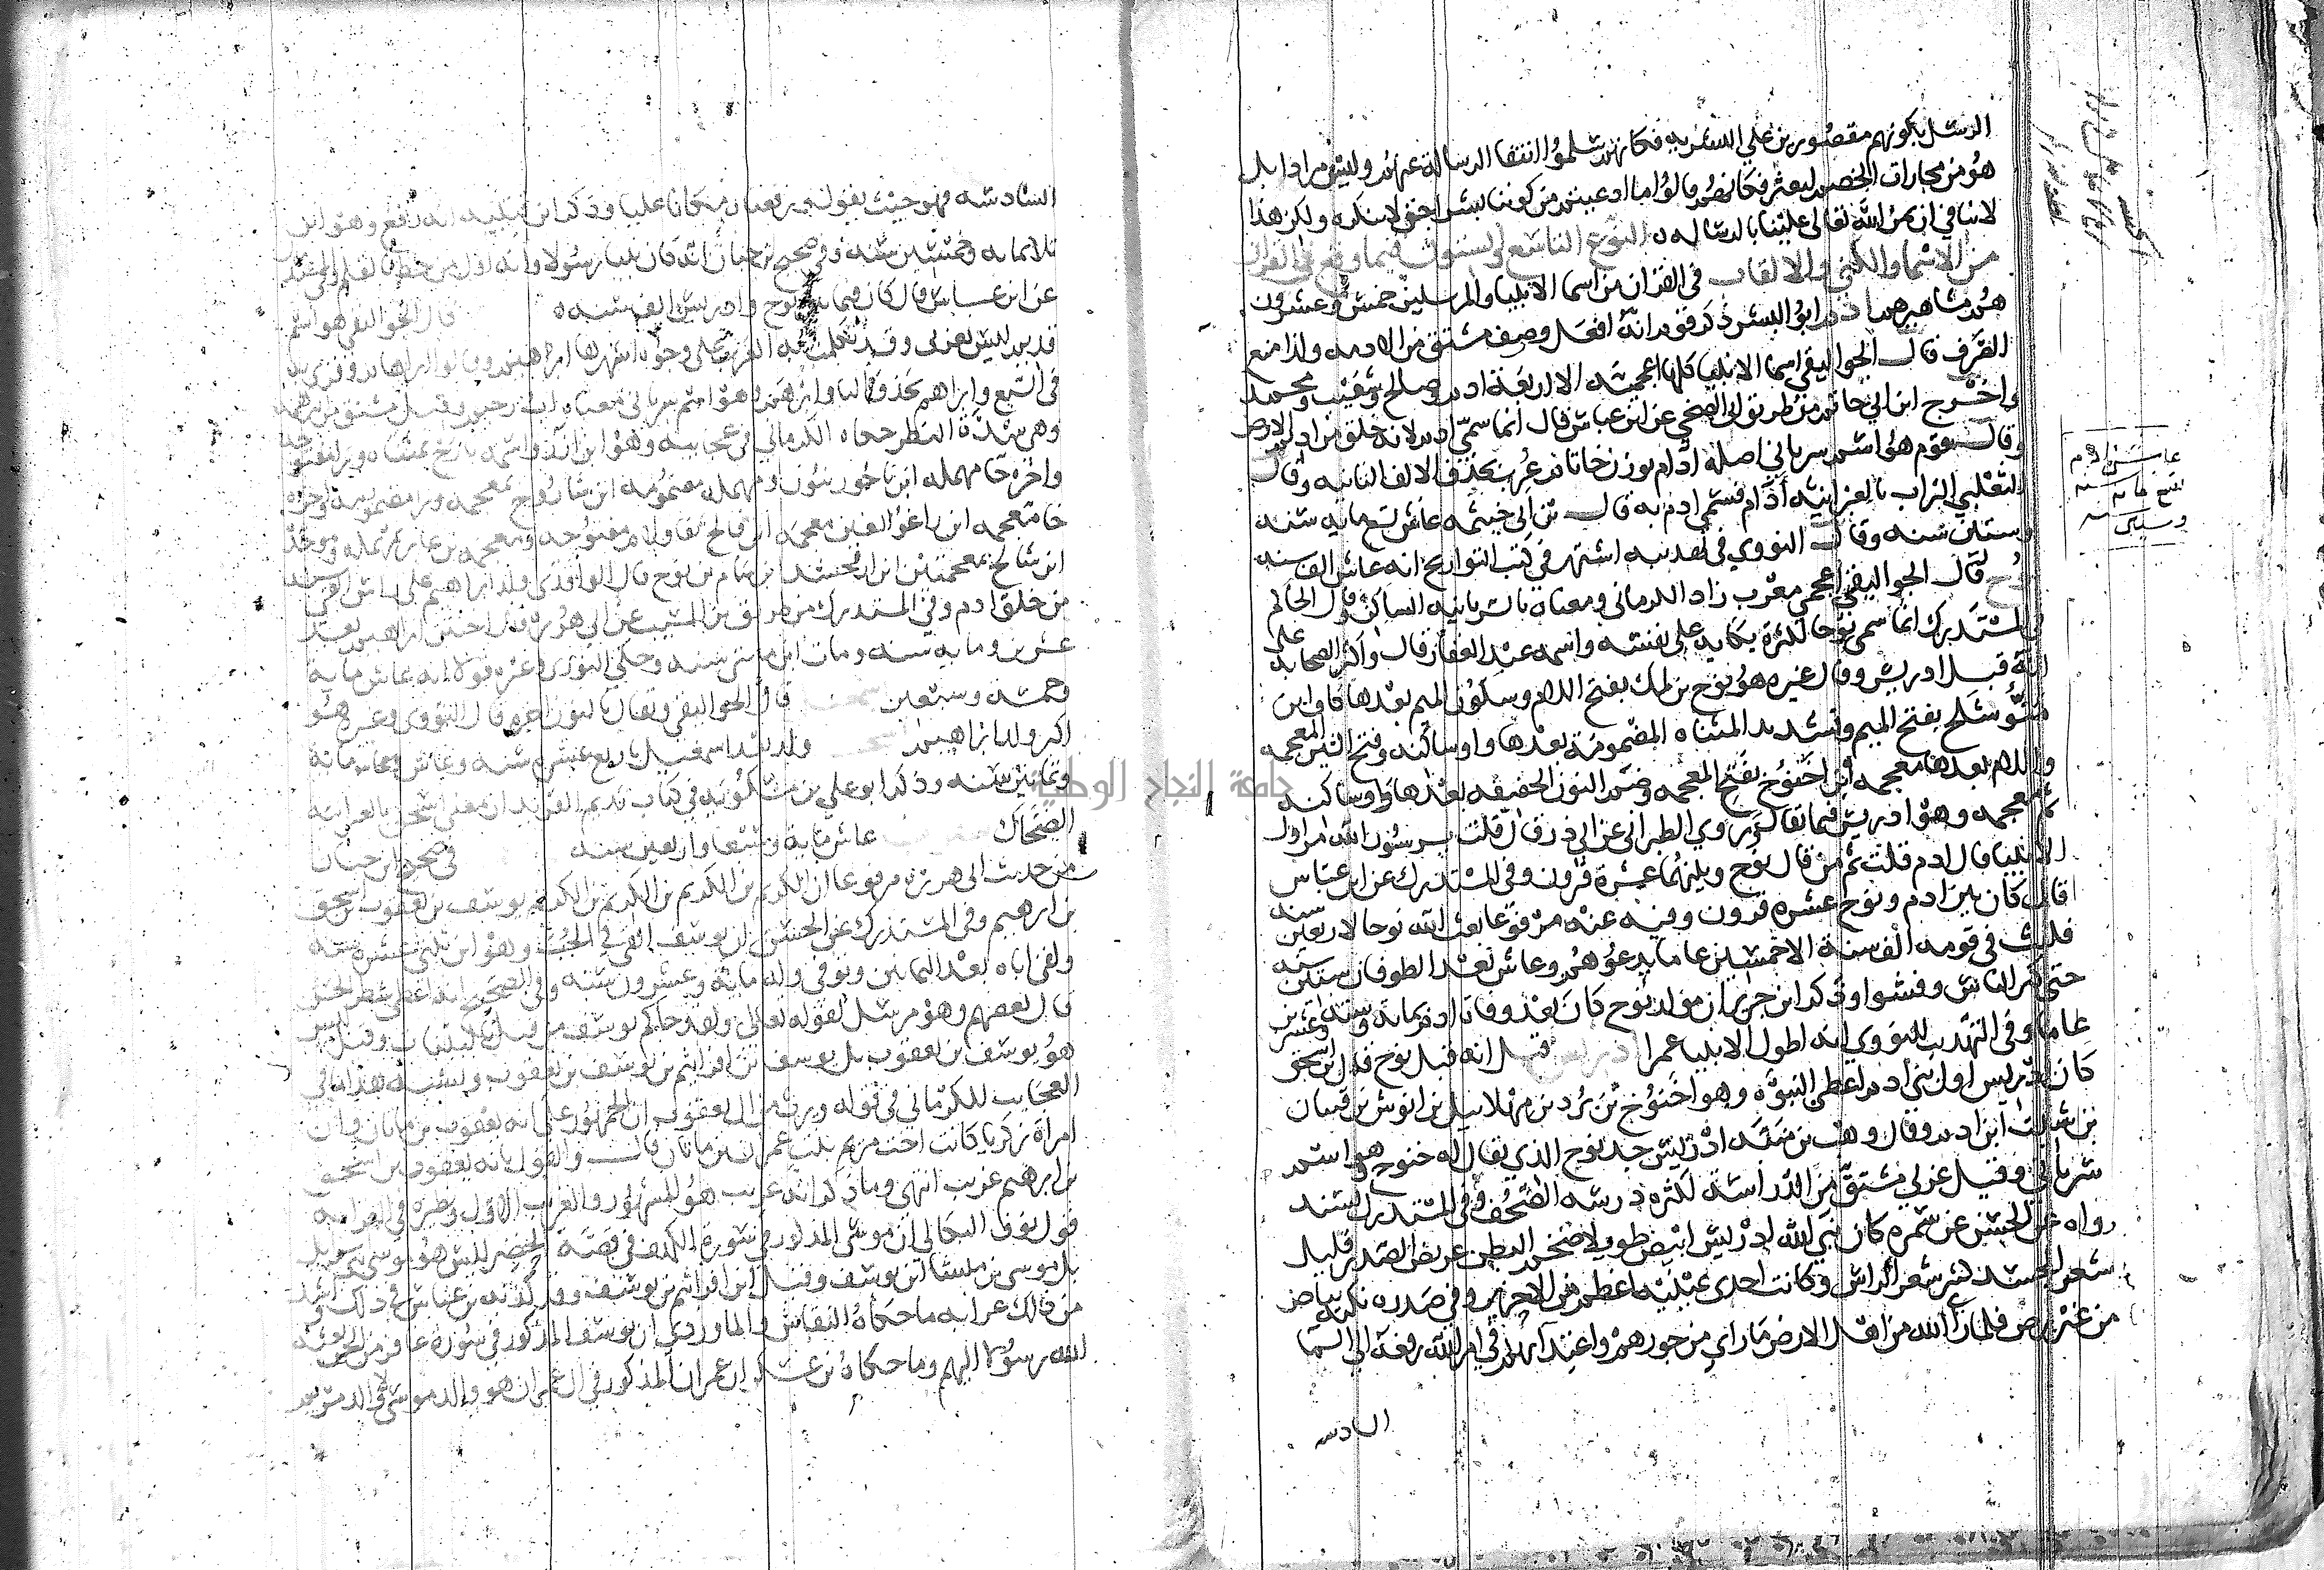 الرسل بكونهم مقصورين علي البشريه فكانهم سلموا انتفا الرسالة عنهم وليس مرادا بل
هو من مجارات الخصم ليعثر فكانهم قالوا ما ادعيتم من كوننا بشرا حق لا ننكره ولكن هذا
لا ينافي ان يمن الله تعالى علينا بالرساله النوع التاسع والستون فيما وقع في القران
من الاسما والكنى والالقاب في القران من اسما الانبيا والمرسلين خمس وعشرون
هم مشاهيرهم ادم ابو البشر ذكر قوم انه افعل وصف مشتق من الادمه ولذا منع
الصرف قال الجواليقي اسما الانبيا كلها اعجميه الا اربعة ادم وصالح وشعيب ومحمد
واخرج ابن ابي حاتم من طريق ابي الضحي عن ابن عباس قال انما سمي ادم لانه خلق من اديم الارض
وقال قوم هو اسم سرياني اصله ادام بوزن خاتام عرب بحذف الالف الثانيه وقال
الثعلبي التراب بالعبرانيه ادام فسمي ادم به قال بن ابي خيثمه عاش تسع مايه سنه
وستين سنه وقال النووي في تهذيبه اشتهر في كتب التواريخ انه عاش الف سنه
نوح قال الجواليقي اعجمي معرب زاد الكرماني ومعناه بالسريانيه الساكن وقال الحاكم
في المستدرك انما سمي نوحا لكثرة بكايه على نفسه واسمه عبد الغفار قال واكثر الصحابه على
انه قبل ادريس وقال غيره هو نوح بن لمك بفتح اللام وسكون الميم بعدها كاف ابن
متوشلح بفتح الميم وتشديد المثناه المضمومة بعدها واو ساكنه وفتح الشين المعجمه
واللام بعدها معجمه ابن اخنوخ بفتح المعجمه وضم النون الخفيفه بعدها واو ساكنه
ثم معجمه وهو ادريس فيما يقال روي الطبراني عن ابي ذر قال قلت يرسول الله من اول
الانبيا قال ادم قلت ثم من قال نوح وبينهما عشرة قرون وفي المستدرك عن ابن عباس
قال كان بين ادم ونوح عشره قرون وفيه عنه مرفوعا بعث الله نوحا لاربعين سنه
فلبث في قومه الف سنة الا خمسين عاما يدعوهم وعاش بعد الطوفان ستين سنه
حتى كثر الناس وفشوا وذكر ابن جرير ان مولد نوح كان بعد وفاة ادم بمايه وسته وعشرين
عاما وفي التهذيب للنووي انه اطول الانبيا عمرا ادريس قيل انه قبل نوح قال بن اسحق
كان ادريس اول بني ادم اعطي النبوه وهو اخنوخ بن يرد بن مهلاييل بن انوش بن قينان
بن شيث ابن ادم وقال وهب بن منبه ادريس جد نوح الذي يقال له خنوخ وهو اسم
سرياني وقيل عربي مشتق من الدراسه لكثره درسه الصحف وفي المستدرك بسند
رواه عن الحسن عن سمره كان نبي الله ادريس ابيض طويلا ضخم البطن عريض الصدر قليل
شعر الجسد كثير شعر الراس وكانت احدى عينيه اعظم من الاخرى وفي صدره نكته بياض
من غير برص فلما راى الله من اهل الارض ما راي من جورهم واعتدايهم في امر الله رفعه الى السما
السادسه
السادسه فهو حيث يقول ورفعناه مكانا عليا وذكر ابن قتيبه انه رفع وهو ابن
ثلاثمايه وخمسين سنه وفي صحيح ابن حبان انه كان نبيا رسولا وانه اول من خط بالقلم وفي المستدرك
عن ابن عباس قال كان فيما بين نوح وادريس الف سنه قال الجواليقي هو اسم
قديم ليس بعربي وقد تكلمت به العرب على وجوه اشهرها ابراهيم وقالوا ابراهام وقري به
في السبع وابراهم بحذف اليا وابرهم وهو اسم سرياني معناه اب رحيم وقيل مشتق من البرهمه
وهي شدة النظر حكاه الكرماني في عجايبه وهو ابن ازر واسمه تارخ بمثناه ورا مفتوحه
واخره حا مهمله ابن ناحور بنون ومهمله مضمومه ابن شاروخ بمعجمه ورا مضمومه واخره
خا معجمه ابن راغو بالغين معجمه ابن فالخ بفا ولام مفتوحه ومعجمه بن عابر بمهمله وموحده
ابن شالخ بمعجمتين ابن ارفخشد بن سام بن نوح قال الواقدي ولد ابراهيم على راس الفي سنه
من خلق ادم وفي المستدرك من طريق بن المسيب عن ابي هريره قال اختتن ابراهيم بعد
عشرين ومايه سنه ومات ابن مايتي سنه وحكى النووي وغيره قولا انه عاش مايه
وخمسه وسبعين قال الجواليقي ويقال بالنون اخره قال النووي وغيره هو
اكبر ولد ابراهيم ولد بعد اسمعيل باربع عشره سنه وعاش مايه
وثمانين سنه وذكر ابو علي بن مشكويه في كتاب نديم الفريد ان معنى اسحق بالعبرانيه
الضحاك عاش مايه وسبعا واربعين سنه في صحيح ابن حبان
من حديث ابي هريره مرفوعا ان الكريم بن الكريم بن الكريم بن الكريم يوسف بن يعقوب بن اسحق
بن ابرهيم وفي المستدرك عن الحسن ان يوسف القي في الجب وهو ابن ثنتي عشره سنه
ولقي اباه بعد الثمانين وتوفي وله مايه وعشرون سنه وفي الصحيح انه اعطي شطر الحسن
قال بعضهم وهو مرسل لقوله تعالى ولقد جاكم يوسف من قبل بالبينات وقيل ليس
هو يوسف بن يعقوب بل يوسف بن افراثيم بن يوسف بن يعقوب ويشبه هذا ما في
العجايب للكرماني في قوله ويرث من ال يعقوب ان الجمهور على انه يعقوب بن ماتان وان
امراة زكريا كانت اخت مريم بنت عمران بن ماتان قال والقول بانه يعقوب بن اسحق
بن ابرهيم غريب انتهى وما ذكر انه غريب هو المشهور والغريب الاول ونظيره في الغرابه
قول نوف البكالي ان موسى المذكور في سورة الكهف في قصة الخضر ليس هو موسى بني اسرايل
بل موسى بن ميشا ابن يوسف وقيل ابن افراثيم بن يوسف وقد كذبه بن عباس في ذلك واشد
من ذلك غرابه ما حكاه النقاش والماوردي ان يوسف المذكور في سورة غافر من الجن بعثه
الله رسولا اليهم وما حكاه بن عسكر ان عمران المذكور في ال عمران هو والد موسى لا والد مريم
جامعة النجاح الوطنية